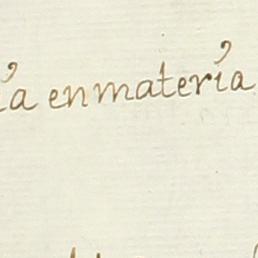 ía enmatería